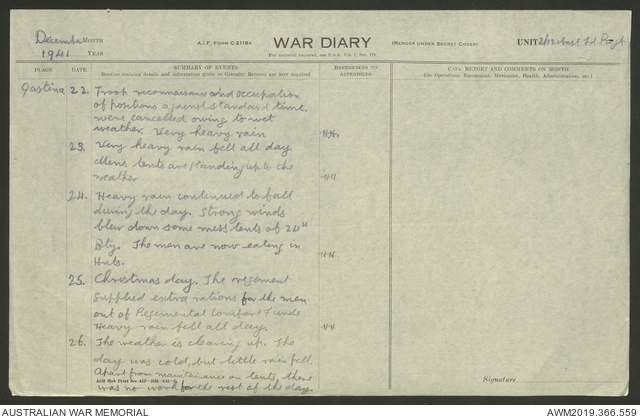 December MONTH
1941 YEAR
A.I.F. FORM C2118
WAR DIARY
(RENDER UNDER SECRET COVER)
UNIT
PLACE
DATE
SUMMARY OF EVENTS
REFERENCES TO APPENDICES
C.O's. REPORT AND COMMENTS ON MONTH
(On Operations, Equipment, Movement, Health, Administration, etc.)
Qastina 22. Troop reconnaisance and occupation
of positions against standard time.
were cancelled owing to wet
weather. Very heavy rain
23. Very heavy rain fell all day
Mens tents are standing up to the
weather
24. Heavy rain continued to fall
during the day. Strong winds
blew down some mess tents of 24th
Bty. The men are now eating in
Huts.
25. Christmas day. The regiment
supplied extra rations for the men
out of Regimental Comfort Funds
Heavy rain fell all day.
26. The weather is clearing up. The
day was cold, but little rain fell.
Apart from maintainance on tents, there
was no work for the rest of the day.
Signature
AUSTRALIAN WAR MEMORIAL
AWM2019.366.559